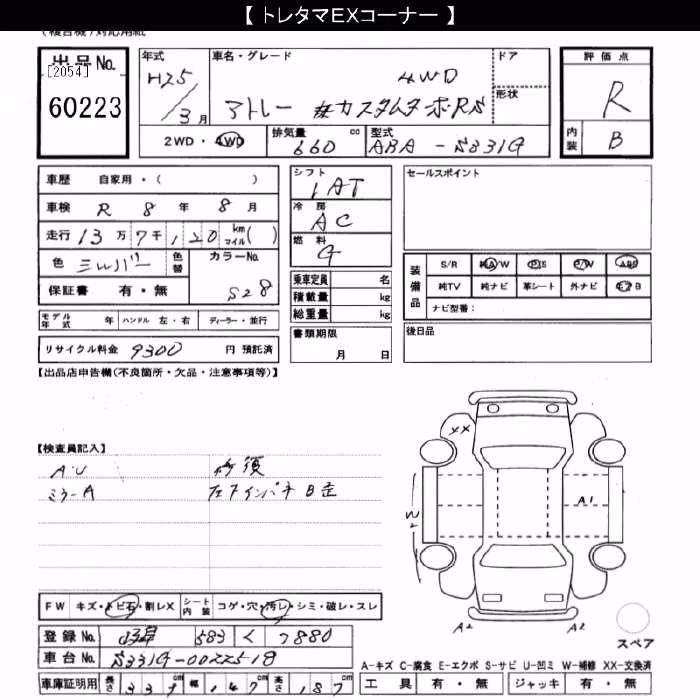 【 トレタマEXコーナー 】
(複合機)対応用紙
出品No.
[2054]
60223
年式 H25/3月
車名・グレード アトレー #カスタムターボRS 4WD
ドア
形状
2WD・4WD
排気量 660 cc
型式 ABA - S331G
評価点 R
内装 B
車歴 自家用・( )
車検 R 8 年 8 月
走行 13万7千120 km マイル( )
色 シルバー 色替
カラーNo. S28
保証書 有・無
シフト IAT
冷房 AC
燃料 G
乗車定員 名
積載量 kg
総重量 kg
書類期限
月 日
セールスポイント
装備品
S/R 純A/W P/S P/W ABS
純TV 純ナビ 革シート 外ナビ エアB
ナビ型番:
後日品
モデル年式 年 ハンドル 左・右 ディーラー・並行
リサイクル料金 9300 円 預託済
【出品店申告欄(不良箇所・欠品・注意事項等)】
【検査員記入】
A・U
ミラーA
修復
左リヤインパネ B歪
XX
W2
A1
A2
A2
スペア
FW キズ・トビ石・割レX
シート内装 コゲ・穴・汚レ・シミ・破レ・スレ
登録No. 583 く 7880
車台No. S331G-0022518
車庫証明用 長さ 339 cm 幅 147 cm 高さ 187 cm
A-キズ C-腐食 E-エクボ S-サビ U-凹ミ W-補修 XX-交換済
工具 有・無 ジャッキ 有・無